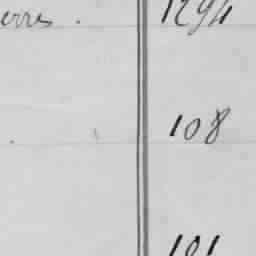 erres . 1294
. 108
101